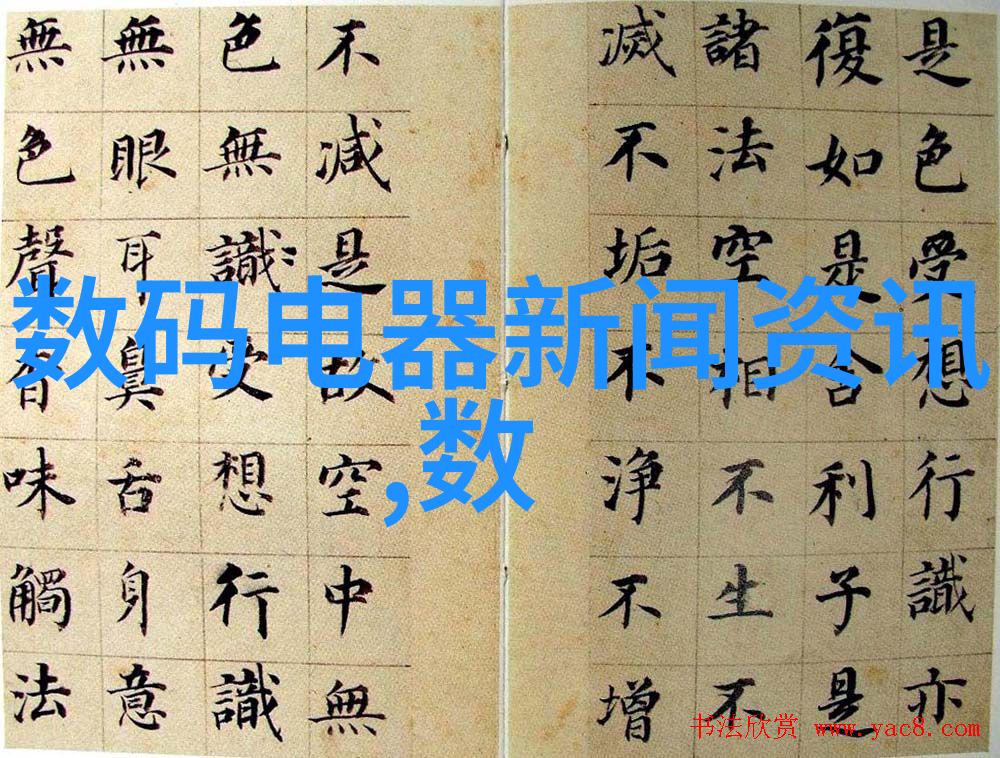 是色受想行識亦
復如是舍利子是
諸法空相不生不
滅不垢不淨不增
不減是故空中無
色無識受想行識
無眼耳鼻舌身意
無色聲香味觸法
数码电器新闻资讯
,数
书法欣赏 www.yac8.com